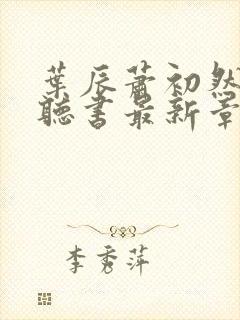 葉辰蕭初然
聽書最新章
李秀萍